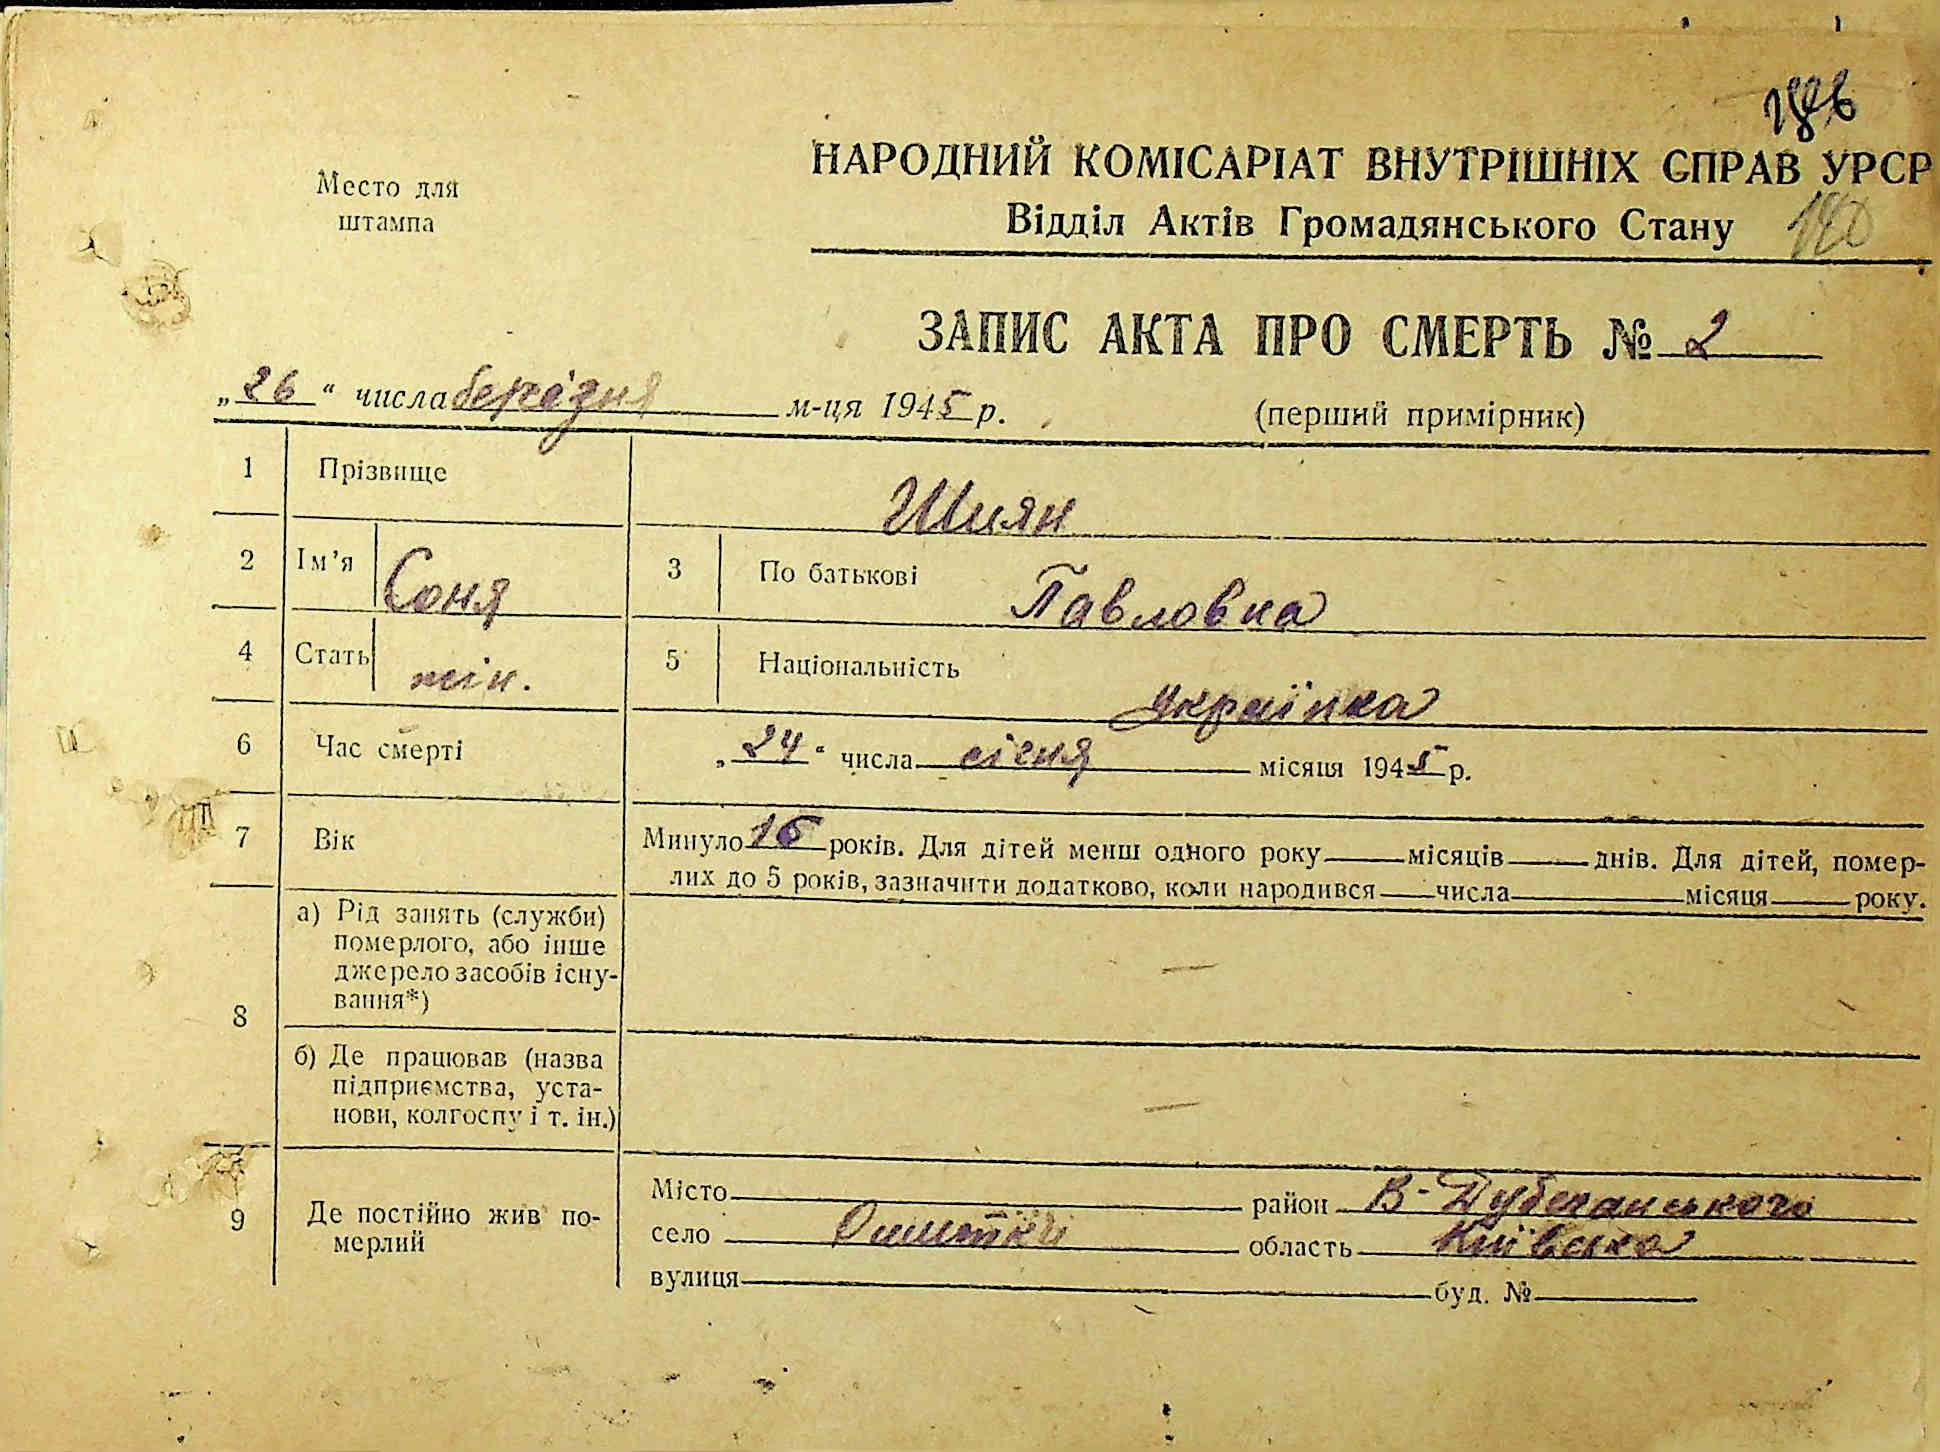 186
180
Место для
штампа
НАРОДНИЙ КОМІСАРІАТ ВНУТРІШНІХ СПРАВ УРСР
Відділ Актів Громадянського Стану
ЗАПИС АКТА ПРО СМЕРТЬ № 2
„26“ числа березня м-ця 1945 р.
(перший примірник)
1 Прізвище Шиян
2 Ім’я Соня 3 По батькові Павловна
4 Стать жін. 5 Національність українка
6 Час смерті „24“ числа січня місяця 1945 р.
7 Вік Минуло 16 років. Для дітей менш одного року місяців днів. Для дітей, помер-
лих до 5 років, зазначити додатково, коли народився числа місяця року.
8 а) Рід занять (служби)
померлого, або інше
джерело засобів існу-
вання*) —
б) Де працював (назва
підприємства, уста-
нови, колгоспу і т. ін.) —
9 Де постійно жив по-
мерлий
Місто район В-Дубечанського
село Ошитки область Київська
вулиця буд. №